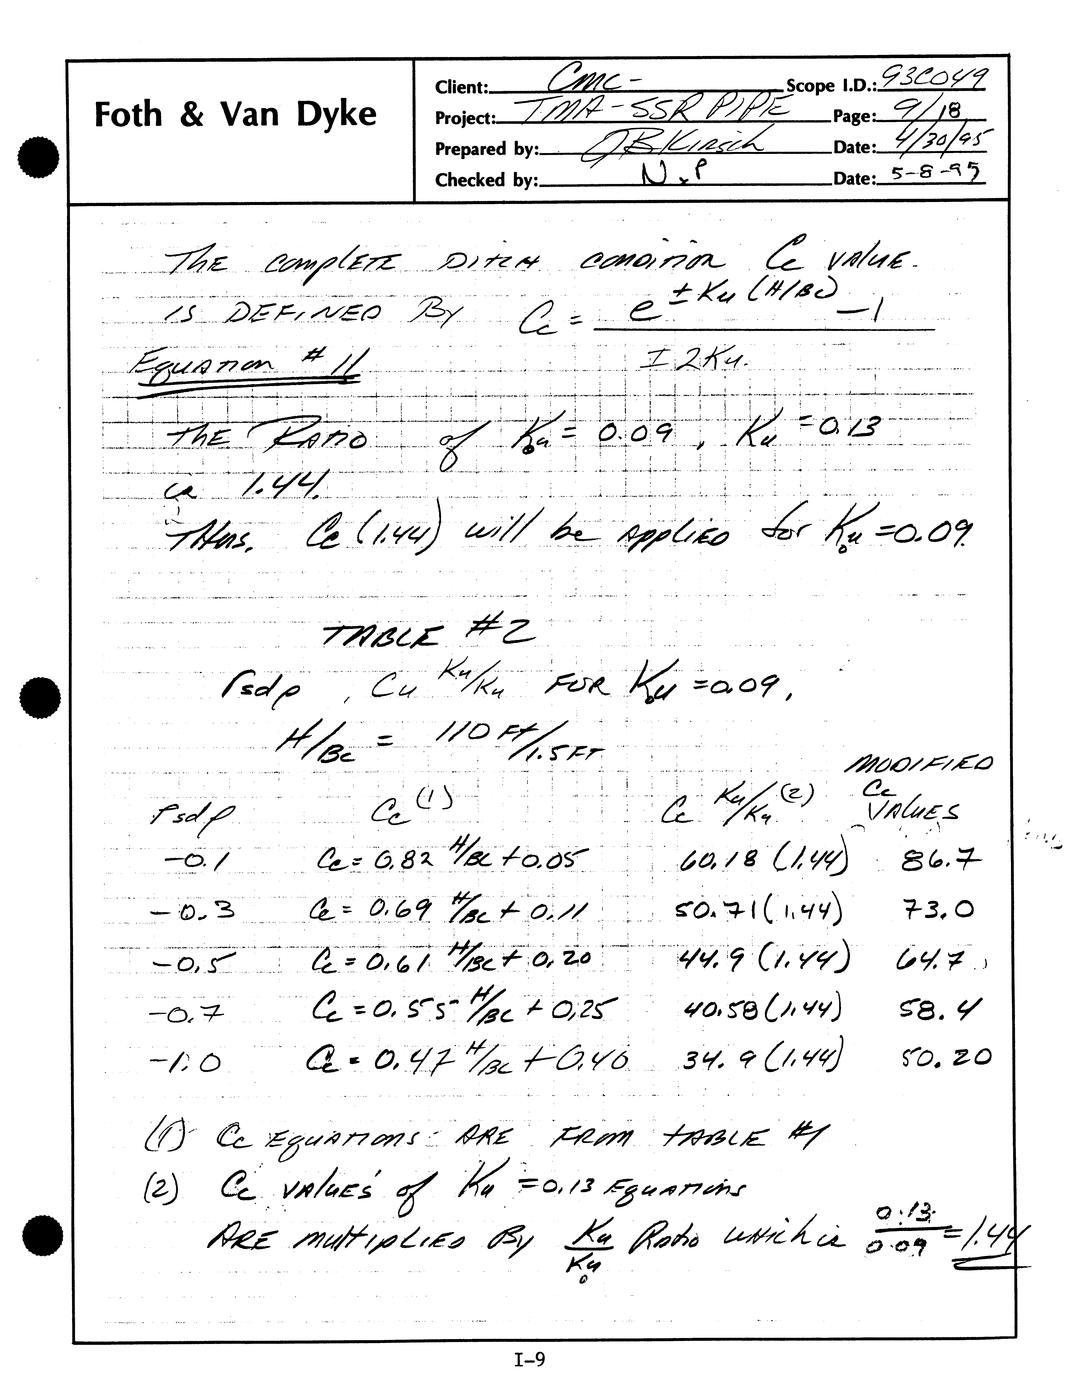 Foth & Van Dyke
Client: CMC- Scope I.D.: 93C049
Project: TMA-SSR PIPE Page: 9/18
Prepared by: JBKirsch Date: 4/30/95
Checked by: N.P Date: 5-8-95
THE COMPLETE DITCH CONDITION Cc VALUE.
IS DEFINED BY Cc = e ± Ku (H/Bc) -1
± 2Ku.
Equation # 11
THE RATIO of K₀u = 0.09, Ku = 0.13
is 1.44.
THus, Cc (1.44) will be APPLIED for K₀u =0.09.
TABLE #2
rsdp, Cu Ku/Ku FOR K₀u =0.09,
H/Bc = 110 FT/1.5FT
MODIFIED
rsdp Cc (1) Cc Ku/Ku (2) Cc VALUES
-0.1 Cc = 0.82 H/Bc + 0.05 60.18 (1.44) 86.7
-0.3 Cc = 0.69 H/Bc + 0.11 50.71 (1.44) 73.0
-0.5 Cc = 0.61 H/Bc + 0.20 44.9 (1.44) 64.7
-0.7 Cc = 0.55 H/Bc + 0.25 40.58 (1.44) 58.4
-1.0 Cc = 0.47 H/Bc + 0.40 34.9 (1.44) 50.20
(1) Cc EQUATIONS ARE FROM TABLE #1
(2) Cc VALUES of Ku = 0.13 EQUATIONS
ARE MULTIPLIED BY Ku/K₀u Ratio which is 0.13/0.09 = 1.44
I-9